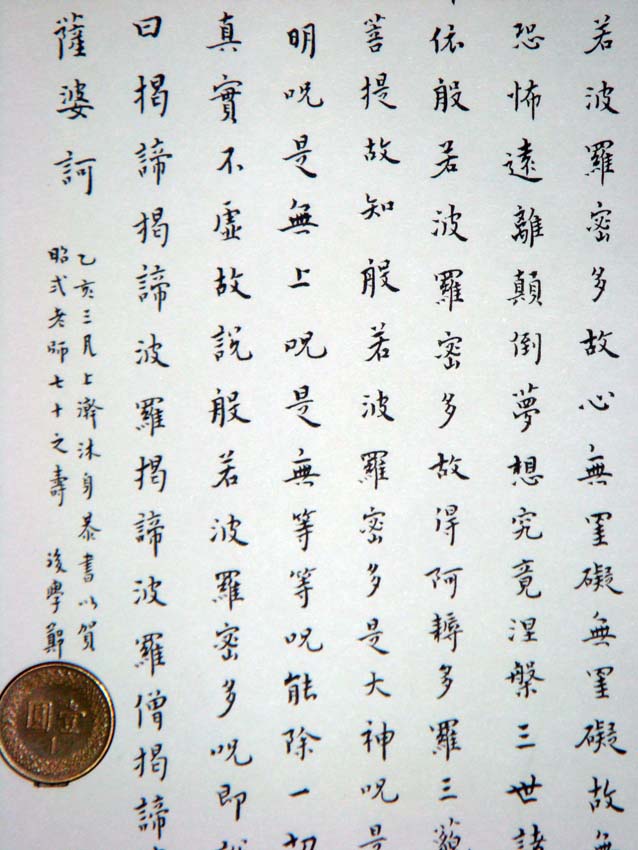 若波羅密多故心無罣礙無罣礙故無
恐怖遠離顛倒夢想究竟涅槃三世諸
依般若波羅密多故得阿耨多羅三藐
菩提故知般若波羅密多是大神呪是
明呪是無上呪是無等等呪能除一切
真實不虛故說般若波羅密多呪即說
曰揭諦揭諦波羅揭諦波羅僧揭諦
薩婆訶
乙亥三月上澣沐身恭書以賀
昭式老師七十之壽 後學鄭
壹圓
1